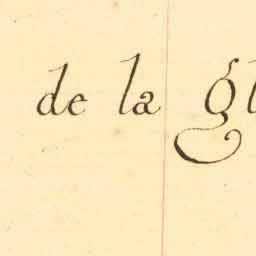 de la gl